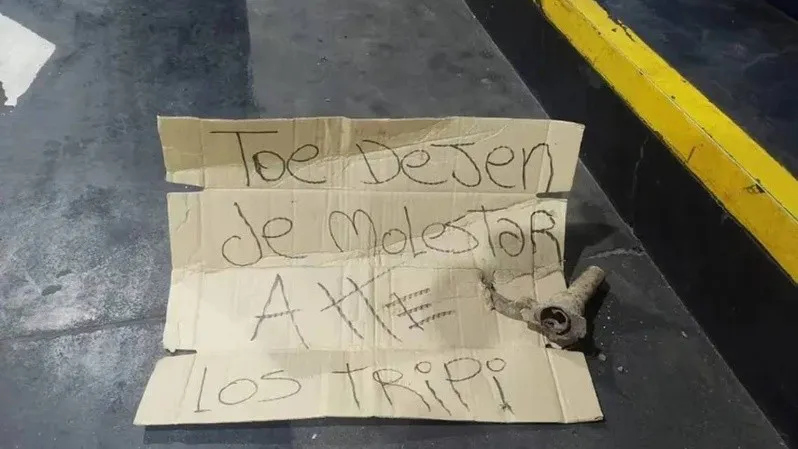 Toe Dejen
de Molestar
ATTE
Los Tripi